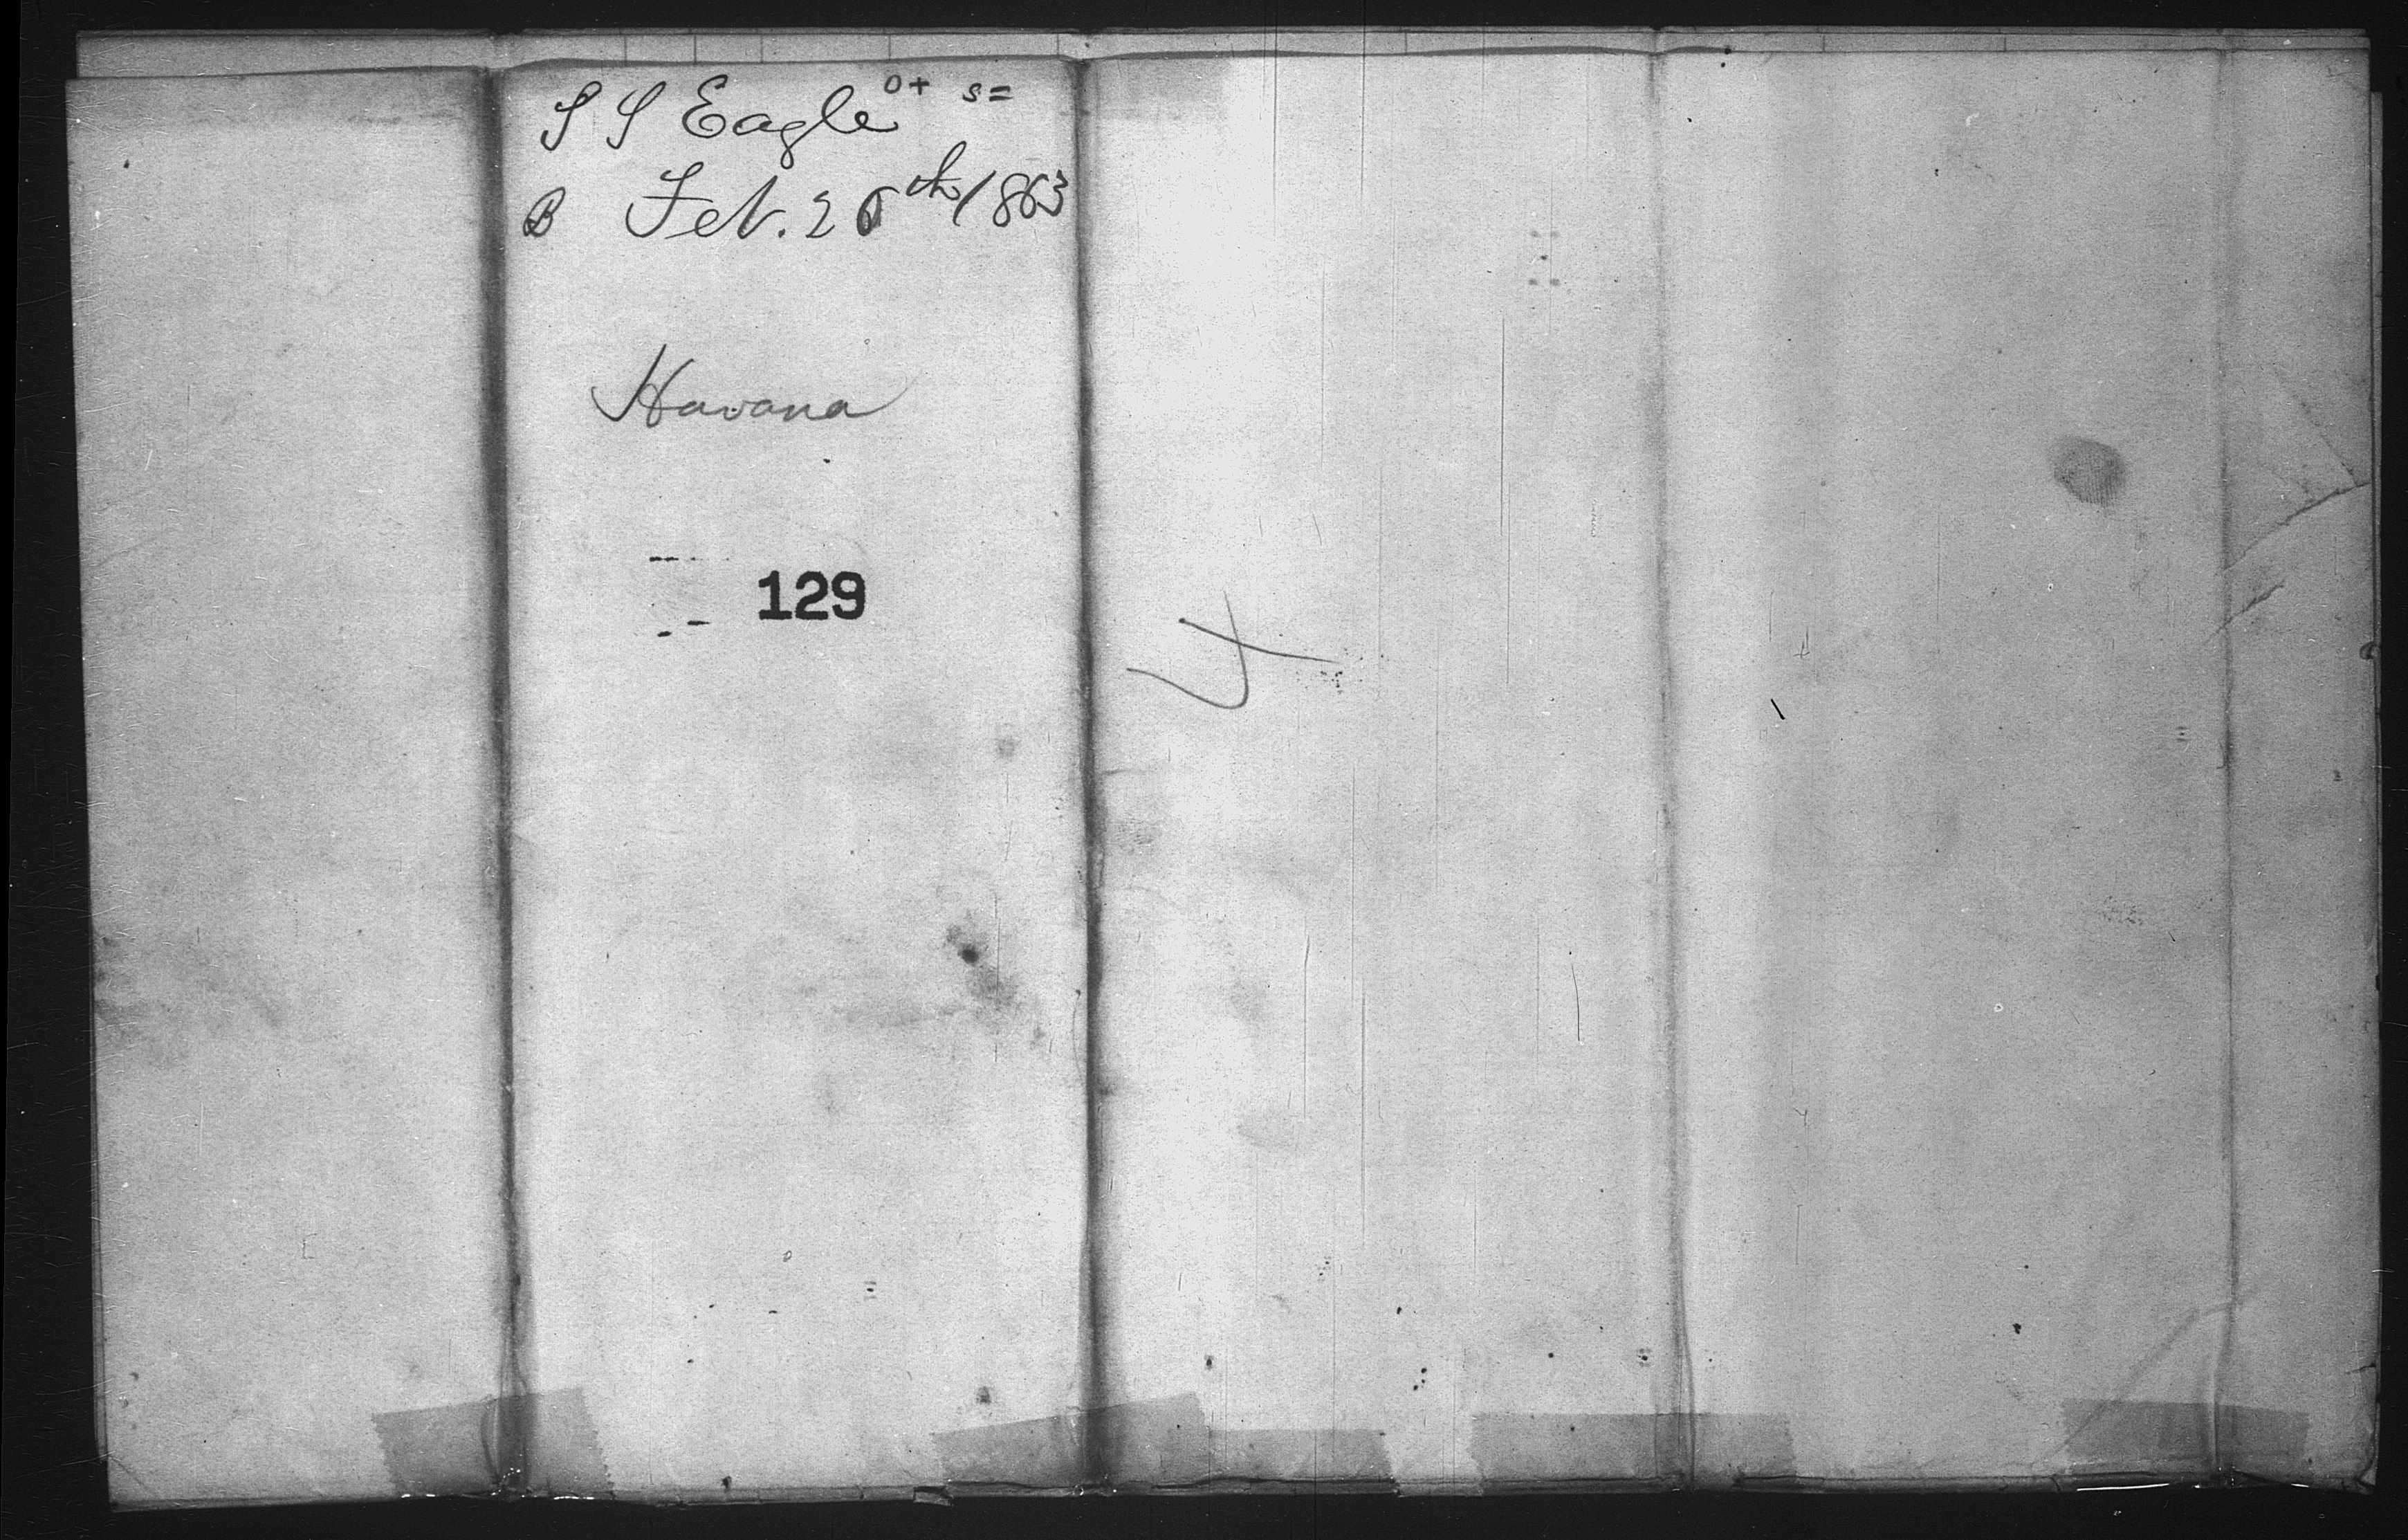 S S Eagle o+ s=
B Feb. 26th 1863
Havana
129